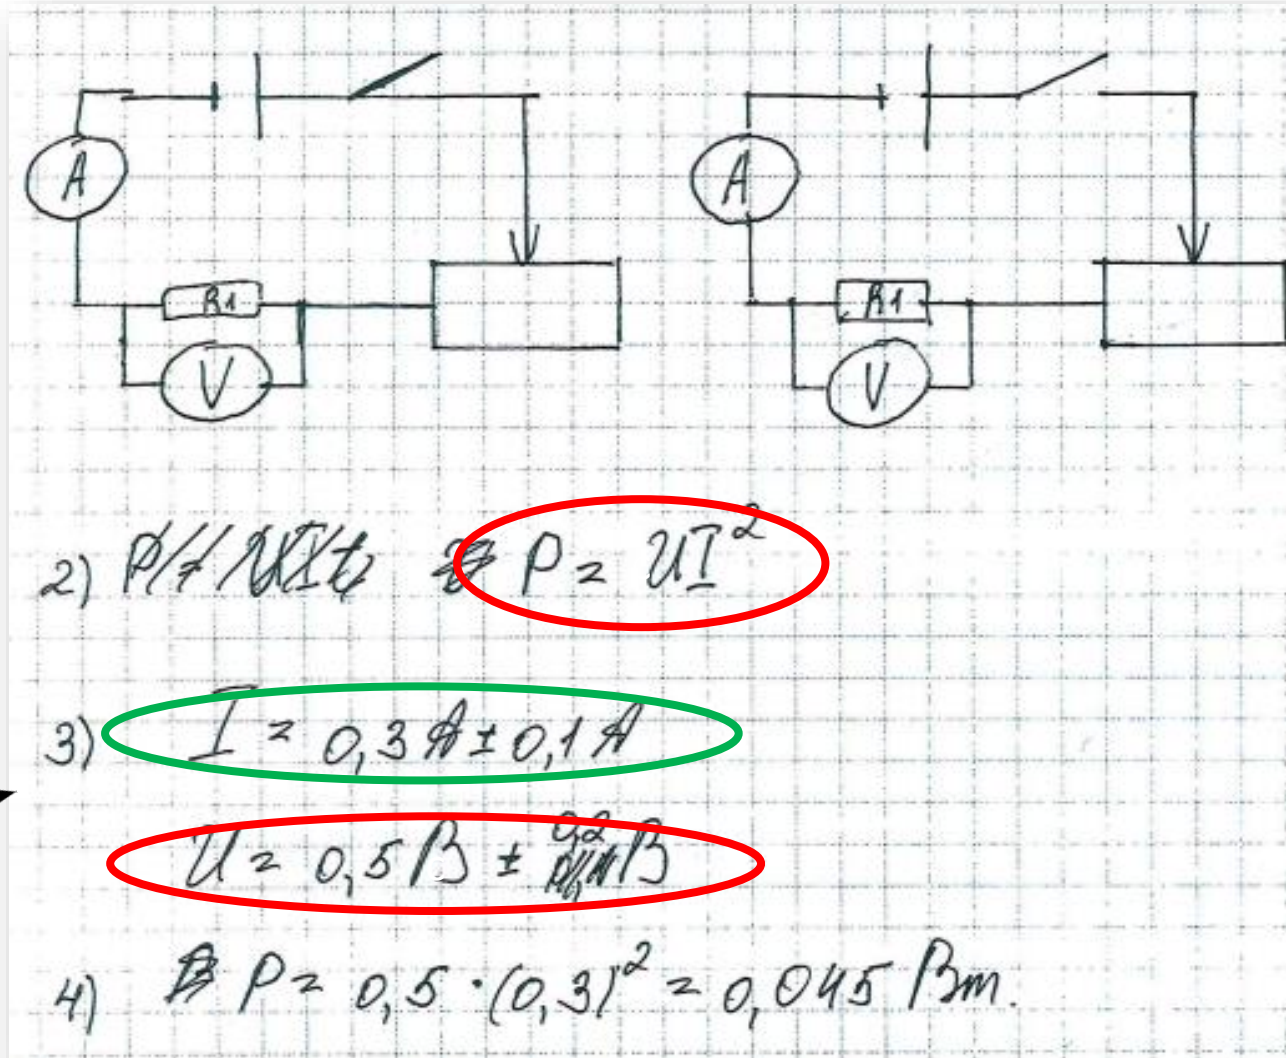 A A
R1 R1
V V
2) P = UI²
3) I = 0,3 А ± 0,1 А
U = 0,5 В ± 0,2 В
4) P = 0,5 · (0,3)² = 0,045 Вт.